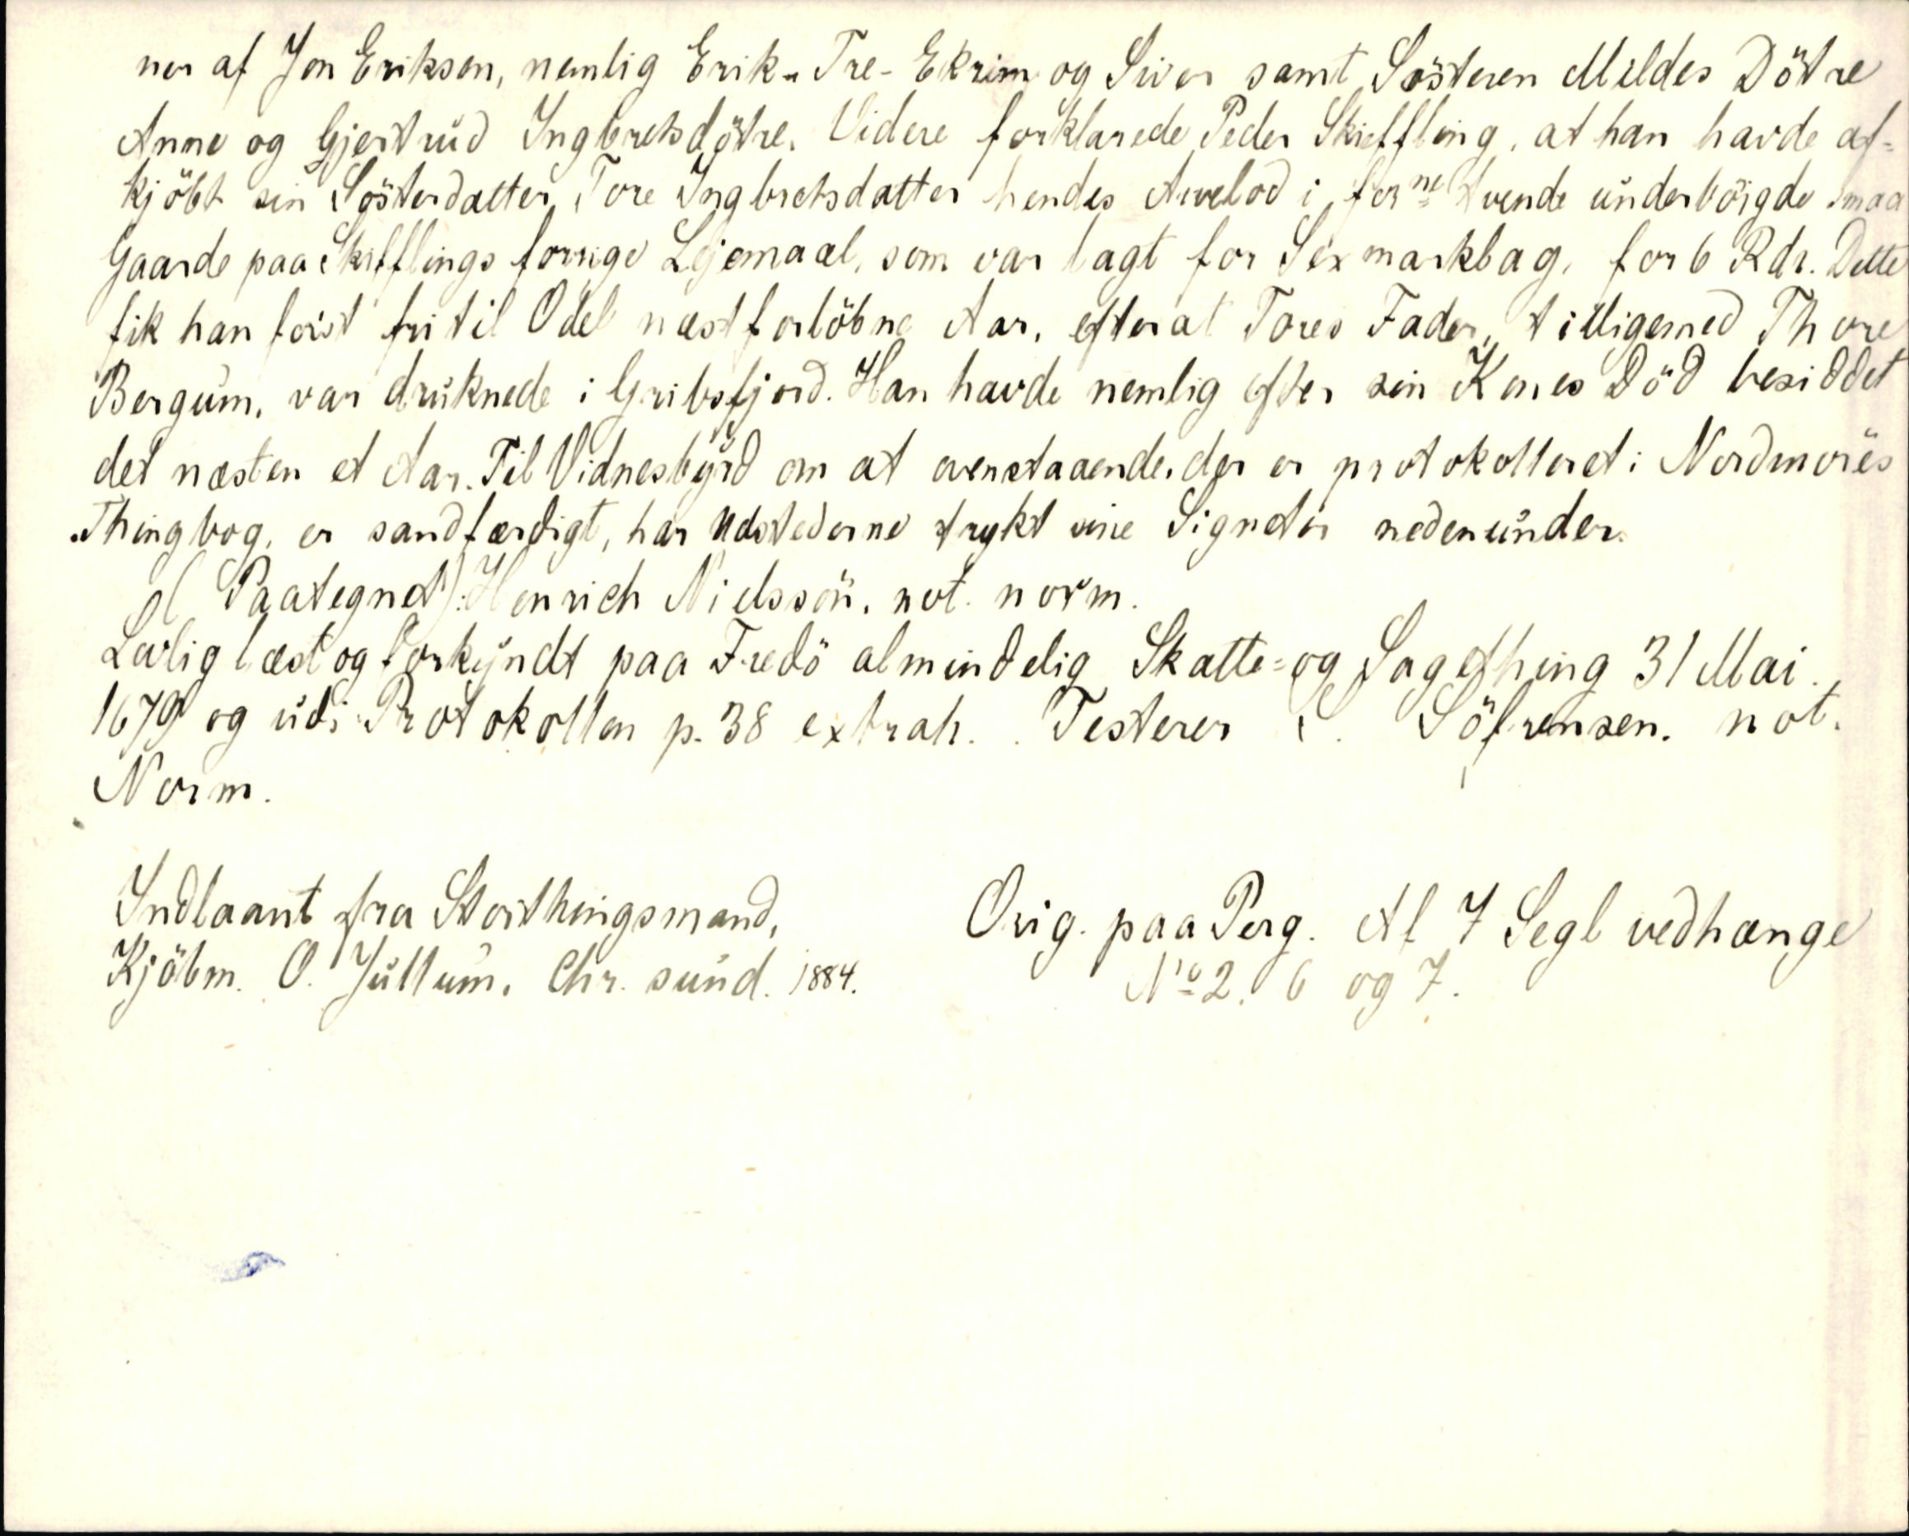 ner af Jon Eriksen, nemlig Erik - Tre - Ekrim og Siver samt Sösteren Mildes Dötre
Anne og Gjertrud Ingbretsdötre. Videre forklarede Peder Skieffling, at han havde af-
kjöbt sin Sösterdatter, Tore Ingbretsdatter hendes Arvelod i forne tvende underböigde smaa
Gaarde paa Skifflings forrige Lejemaal, som var lagt for Sex markbag, for 6 Rdr. Dette
fik han först fri til Odel næstforlöbne Aar, efterat Tores Fader, tilligemed Thore
Bergum, var druknede i Gribsfjord. Han havde nemlig efter sin Kones Död besiddet
det næsten et Aar. Til Vidnesbyrd om at ovenstaaende, der er protokolleret i Nordmöres
Thingbog, er sandfærdigt, har Udstederne trykt sine Signeter nedenunder.
(Paategnet): Henrich Nielssön, not. norm.
Lovlig læst og forkyndt paa Fredö almindelig Skatte- og Sagething 31 Mai
1679 og udi Protokollen p. 38 extrah. Testerer S. Söfrensen. not.
Norm.
Indlaant fra Storthingsmand,
Kjöbm. O. Jullum, Chr. sund. 1884.
Orig. paa Perg. Af 7 Segl vedhænge
No 2. 6 og 7.